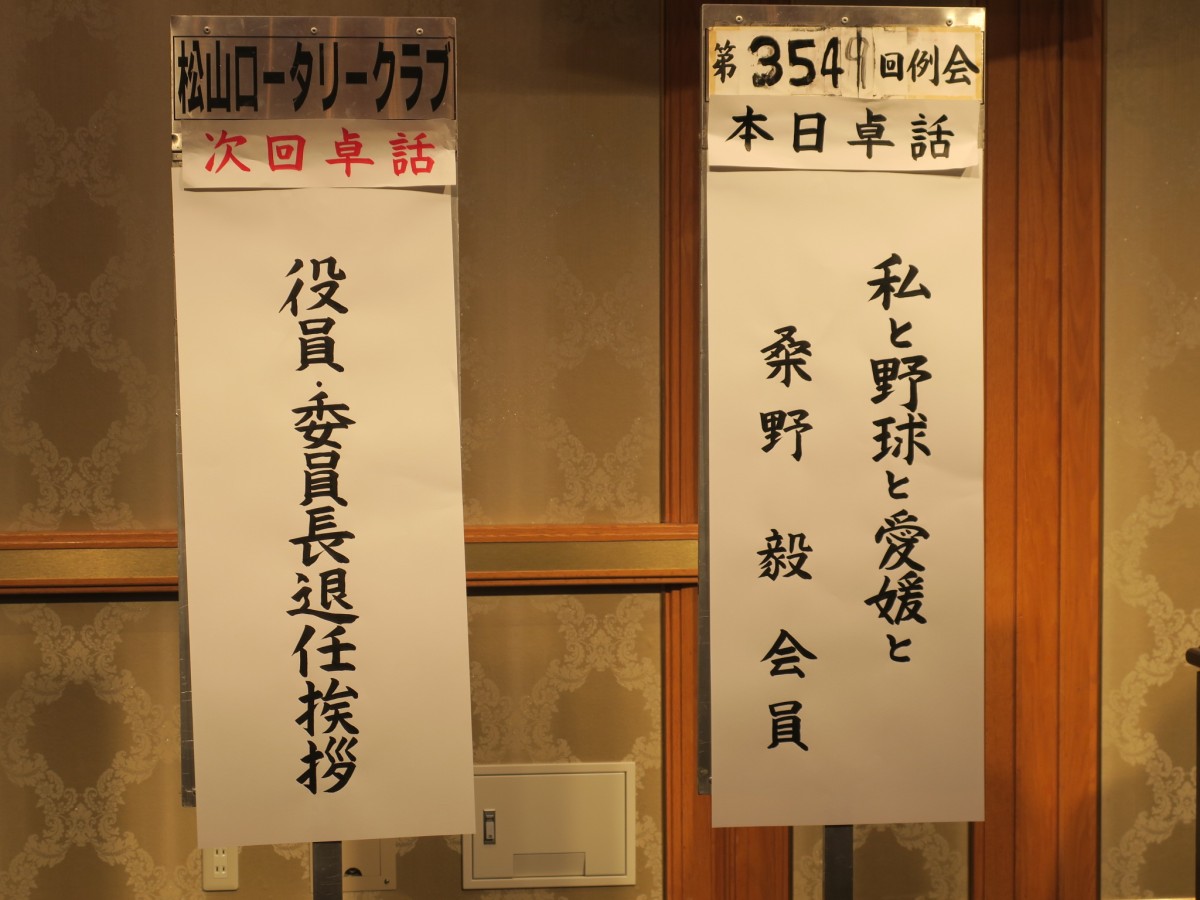 松山ロータリークラブ
次回卓話
役員・委員長退任挨拶
第3549回例会
本日卓話
私と野球と愛媛と
桑野 毅 会員